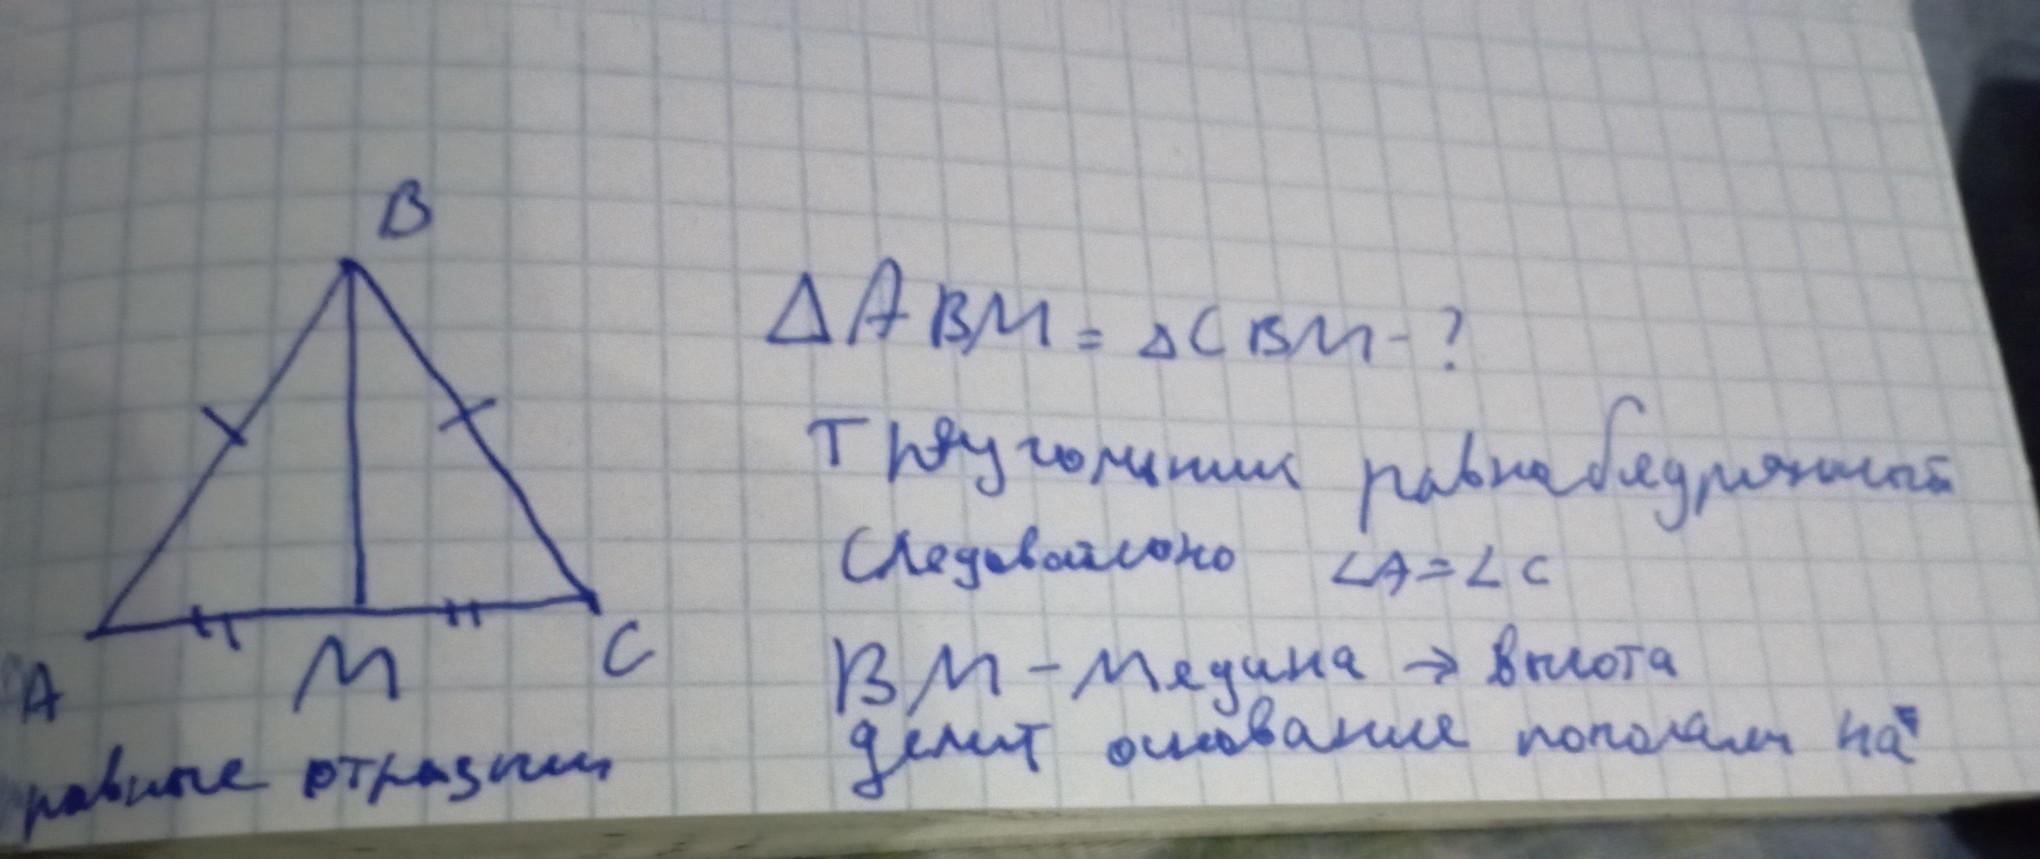 B
A
M
C
△ABM = △CBM - ?
Треугольник равнабедрянный
Следовательно ∠A=∠C
BM - Медина → высота
делит основание пополам на
равные отрезки